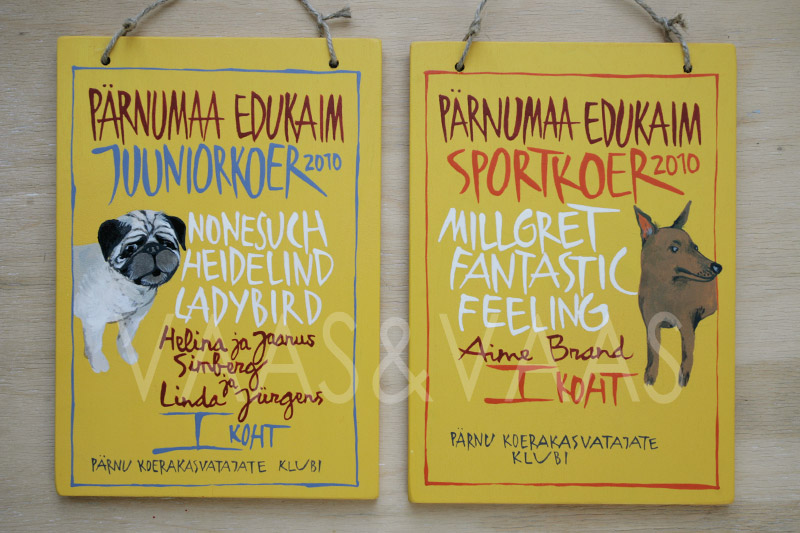 PÄRNUMAA EDUKAIM
JUUNIORKOER 2010
NONESUCH
HEIDELIND
LADYBIRD
Helina ja Jaanus
Simberg
ja
Linda Jürgens
I KOHT
PÄRNU KOERAKASVATAJATE KLUBI
PÄRNUMAA EDUKAIM
SPORTKOER 2010
MILLGRET
FANTASTIC
FEELING
Aime Brand
I KOHT
PÄRNU KOERAKASVATAJATE
KLUBI
VAAS&VAAS